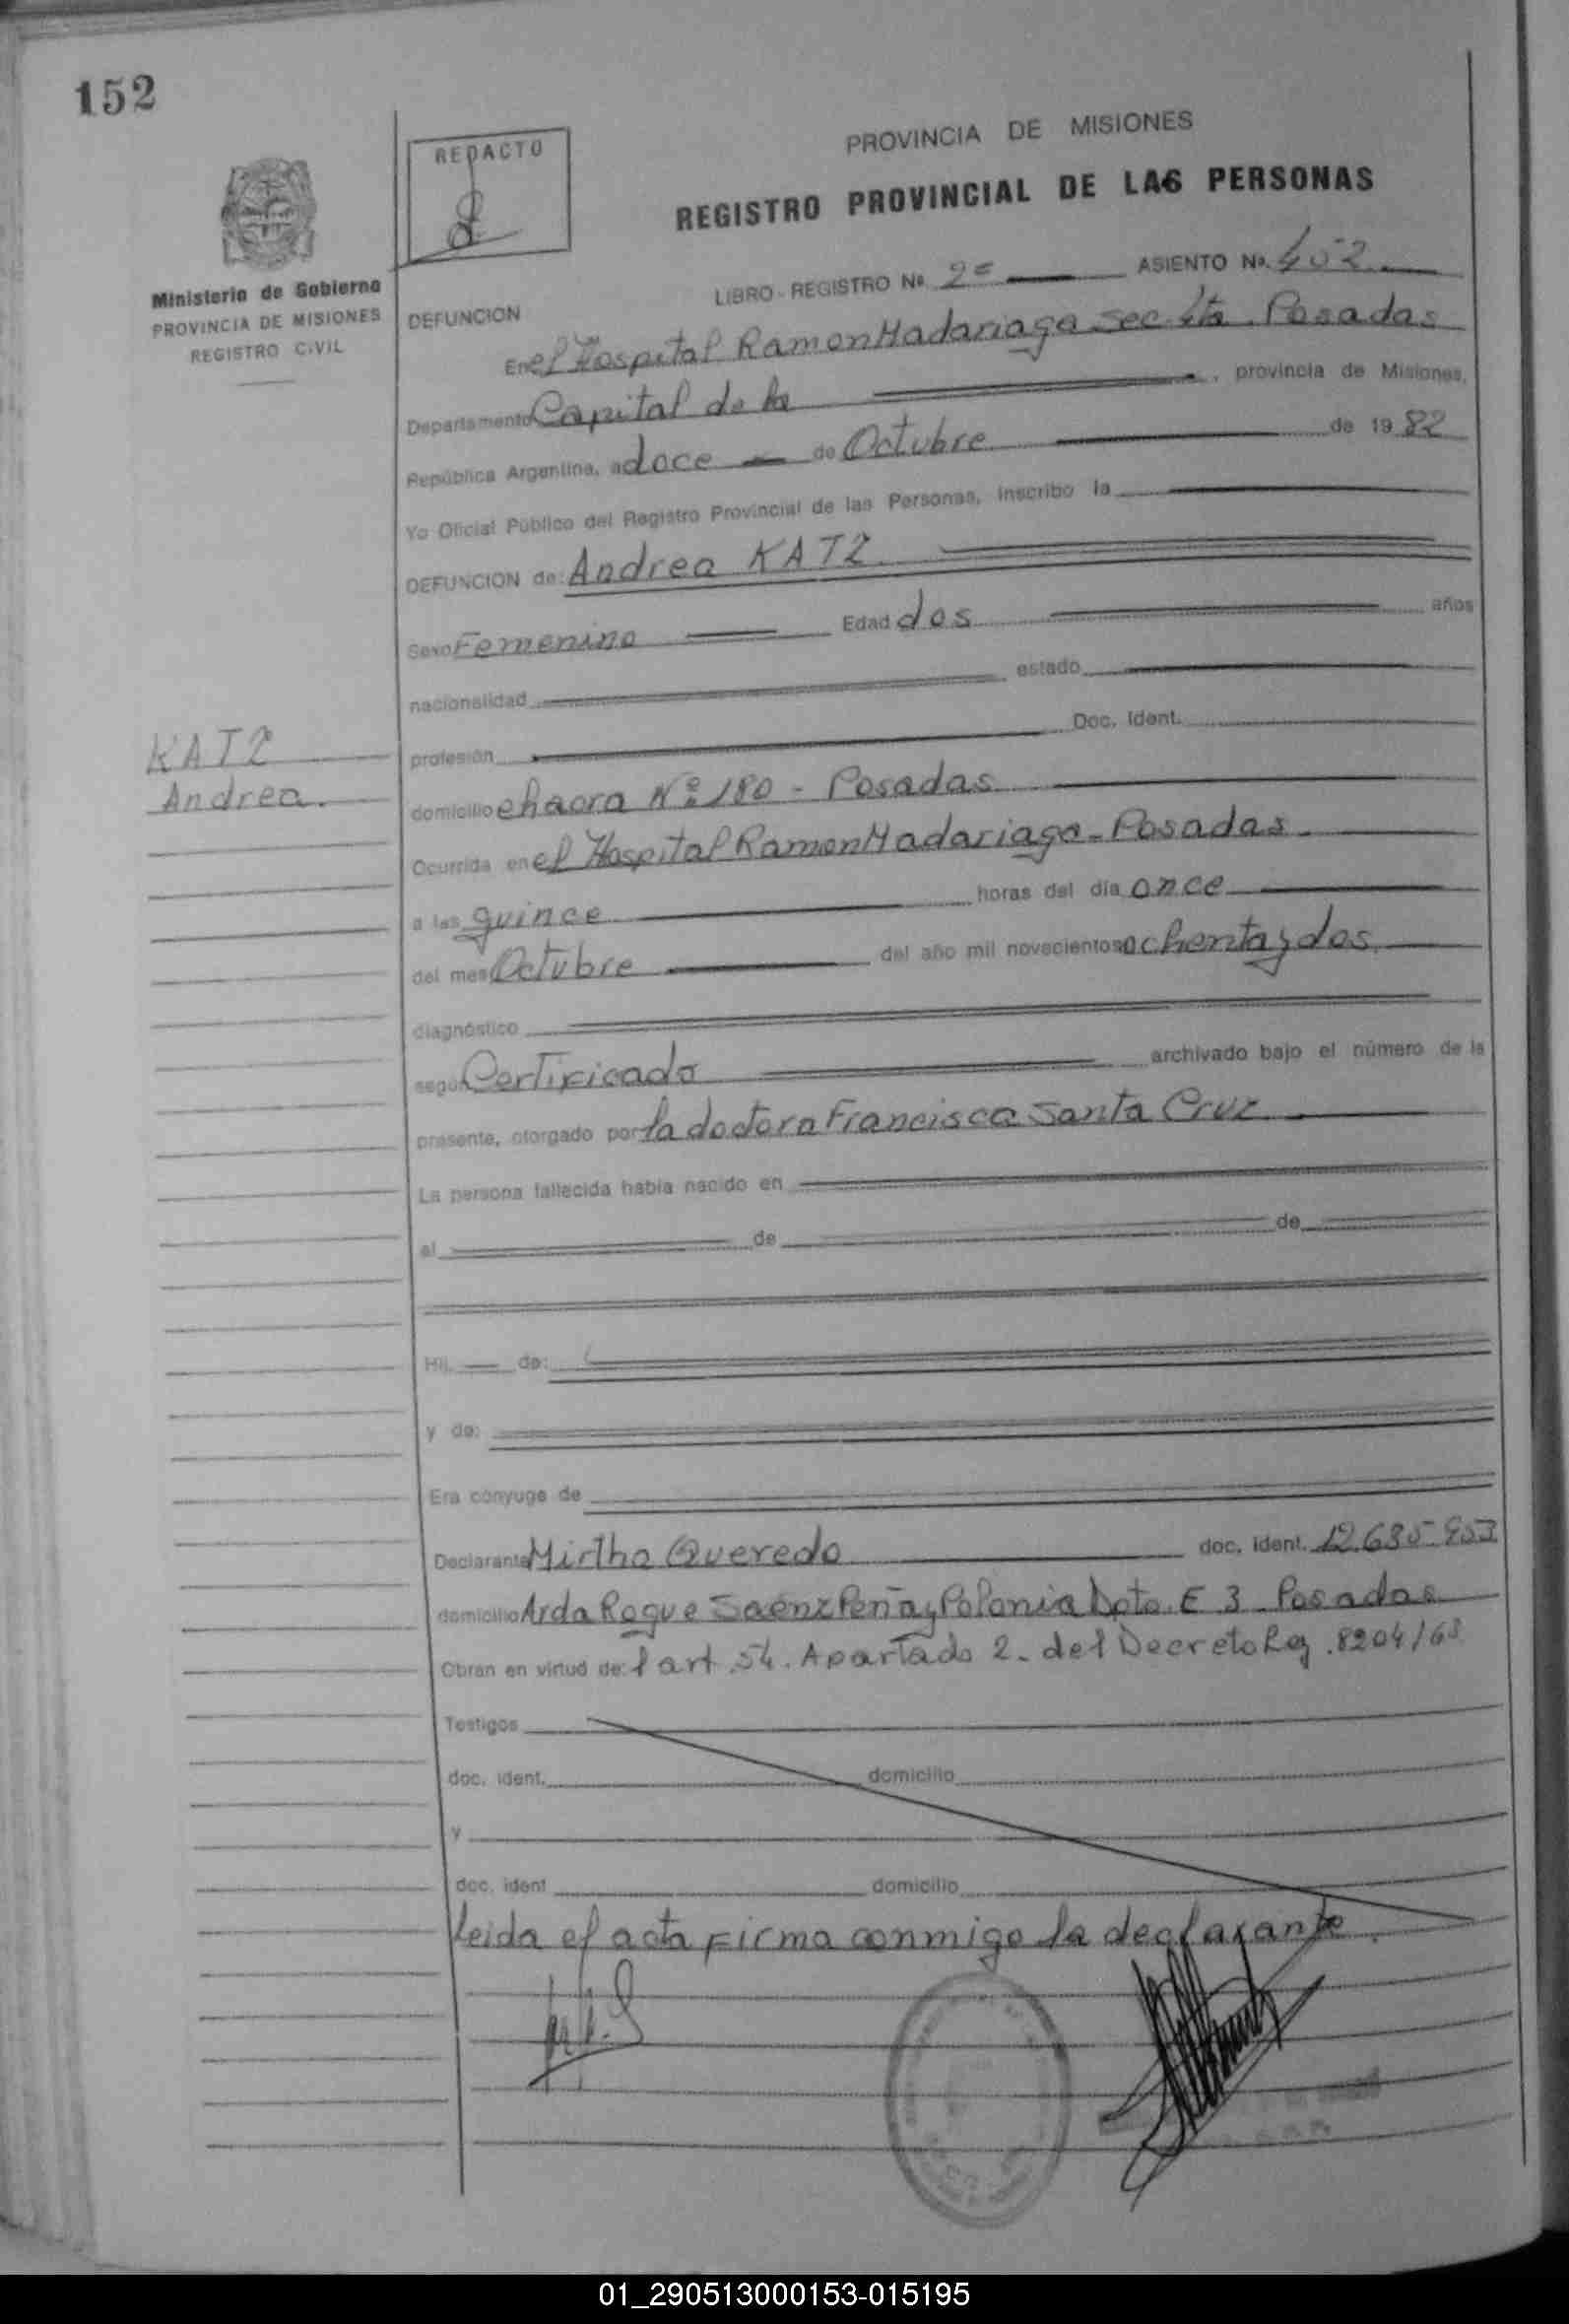 152
REDACTO
PROVINCIA DE MISIONES
REGISTRO PROVINCIAL DE LAS PERSONAS
Ministerio de Gobierno
PROVINCIA DE MISIONES
REGISTRO CIVIL
LIBRO - REGISTRO Nº 2º ASIENTO Nº. 452
DEFUNCION
En el Hospital Ramon Madariaga Sec. 4ta. Posadas
Departamento Capital de la , provincia de Misiones,
República Argentina, a doce de Octubre de 1982
Yo Oficial Público del Registro Provincial de las Personas, inscribo la
DEFUNCION de: Andrea KATZ
Sexo Femenino Edad dos años
nacionalidad estado
profesión Doc. Ident.
KATZ
Andrea.
domicilio chacra Nº 180 - Posadas
Ocurrida en el Hospital Ramon Madariaga - Posadas
a las quince horas del día once
del mes Octubre del año mil novecientos ochenta y dos
diagnóstico
según Certificado archivado bajo el número de la
presente, otorgado por la doctora Francisca Santa Cruz
La persona fallecida había nacido en
el de de
Hij. de:
y de:
Era cónyuge de
Declarante Mirtha Queredo doc. ident. 12.635.953
domicilio Avda Roque Saenz Peña y Polonia Dpto. E 3 Posadas
Obran en virtud de: l art. 54. Apartado 2. del Decreto Ley .8204/63
Testigos
doc. ident. domicilio
y
doc. ident domicilio
Leida el acta firma conmigo la declarante.
01_290513000153-015195